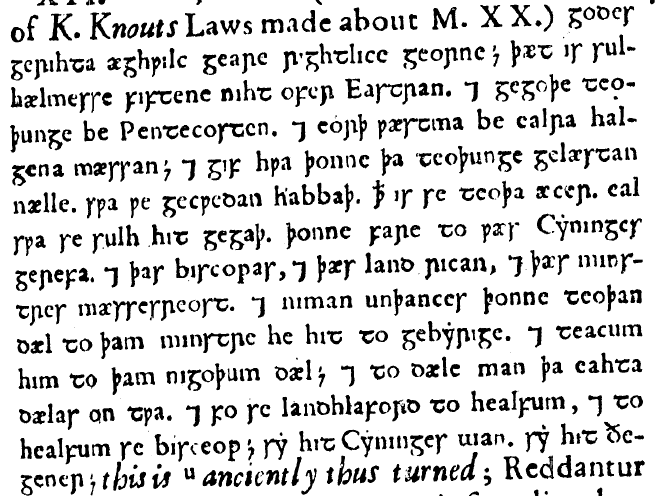 of K. Knouts Laws made about M. XX.) godes
gerihta æghƿilc geare rightlice georne; þæt is sul-
hælmesse fiftene niht ofer Eastran. ⁊ gegoþe teo-
þunge be Pentecosten. ⁊ eorþ ƿæstma be ealra hal-
gena mæssan; ⁊ gif hƿa þonne þa teoþunge gelæstan
nælle. sƿa ƿe gecƿedan habbaþ. ꝥ is se teoþa æcer. eal
sƿa se sulh hit gegaþ. þonne fare to ƿæs Cẏninges
gerefa. ⁊ þas biscopas, ⁊ þæs land rican, ⁊ þæs mins-
tres mæssersreost. ⁊ niman unþances þonne teoþan
dæl to þam minstre he hit to gebẏrige. ⁊ teacum
him to þam nigoþum dæl; ⁊ to dæle man þa eahta
dælas on tƿa. ⁊ fo se landhlaford to healfum, ⁊ to
healfum se bisceop; sẏ hit Cẏninges man. sẏ hit ðe-
genes; this is u anciently thus turned; Reddantur